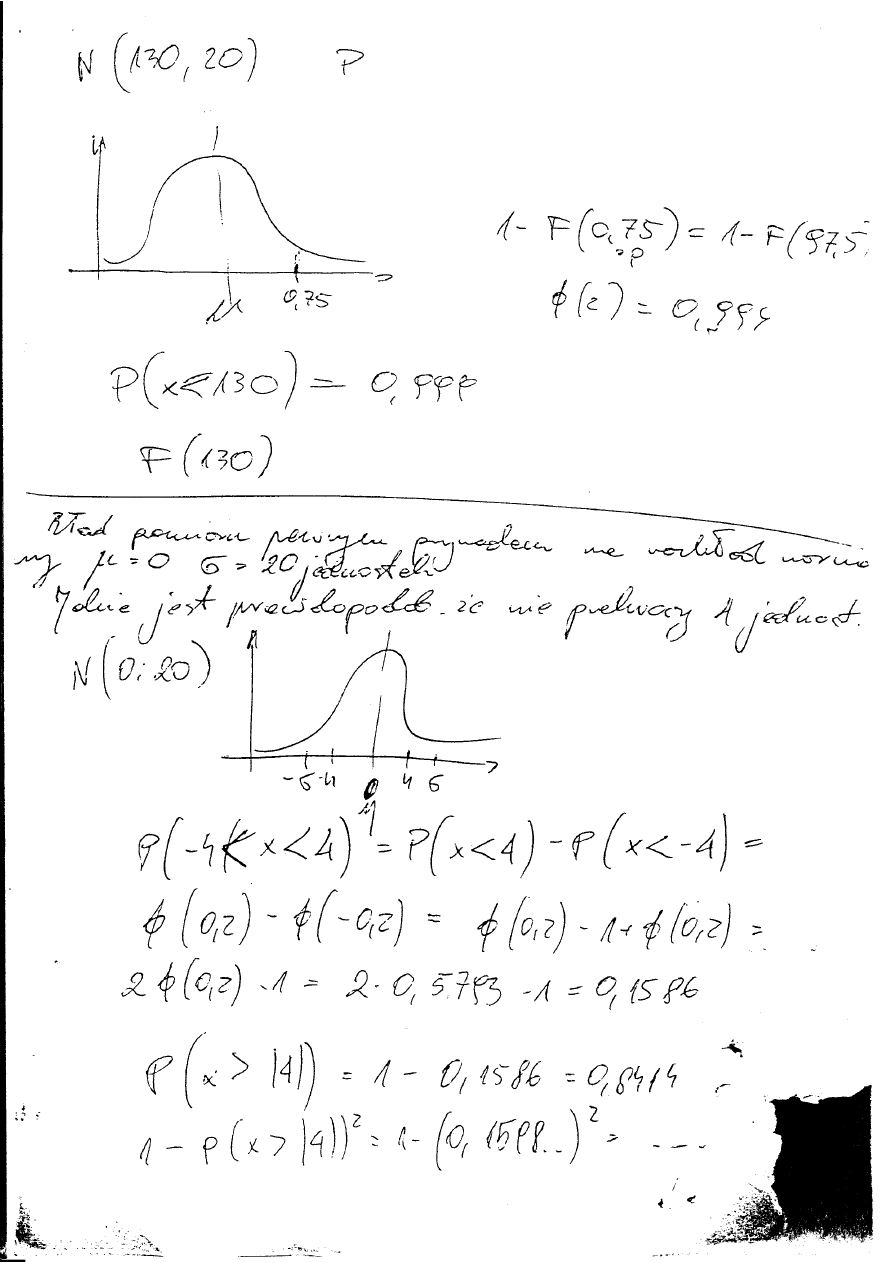 N (130, 20) P
μ 0,75
1 - F(0,75) = 1 - F(97,5
ϕ(z) = 0,999
P(x < 130) = 0,999
F(130)
Błąd pomiaru pewnym przyrządem ma rozkład norma
ny μ = 0 σ = 20 jednostek
Jakie jest prawdopodob. że nie przekroczy 4 jednost.
N(0; 20)
-σ -4 0 4 σ
μ
P(-4 < x < 4) = P(x < 4) - P(x < -4) =
ϕ(0,2) - ϕ(-0,2) = ϕ(0,2) - 1 + ϕ(0,2) =
2ϕ(0,2) - 1 = 2 · 0,5793 - 1 = 0,1586
P(x > |4|) = 1 - 0,1586 = 0,8414
1 - P(x > |4|)² = 1 - (0,1598..)² = ....